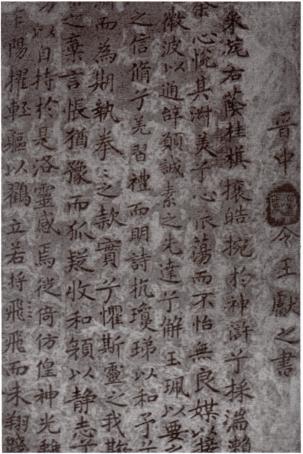 晋中令王獻之書
采旄右蔭桂旗攘皓捥於神滸兮採湍瀨
心悦其淑美兮心振蕩而不怡無良媒以接
微波以通辭願誠素之先達兮解玉珮以要之
之信脩兮羌習禮而明詩抗瓊珶以和予兮
而為期執拳〻之款實兮懼斯靈之我斯
之棄言悵猶豫而狐疑收和顏以静志兮
以自持於是洛靈感焉徙倚仿偟神光離
乍陽擢輕軀以鶴立若将飛飛而未翔踐